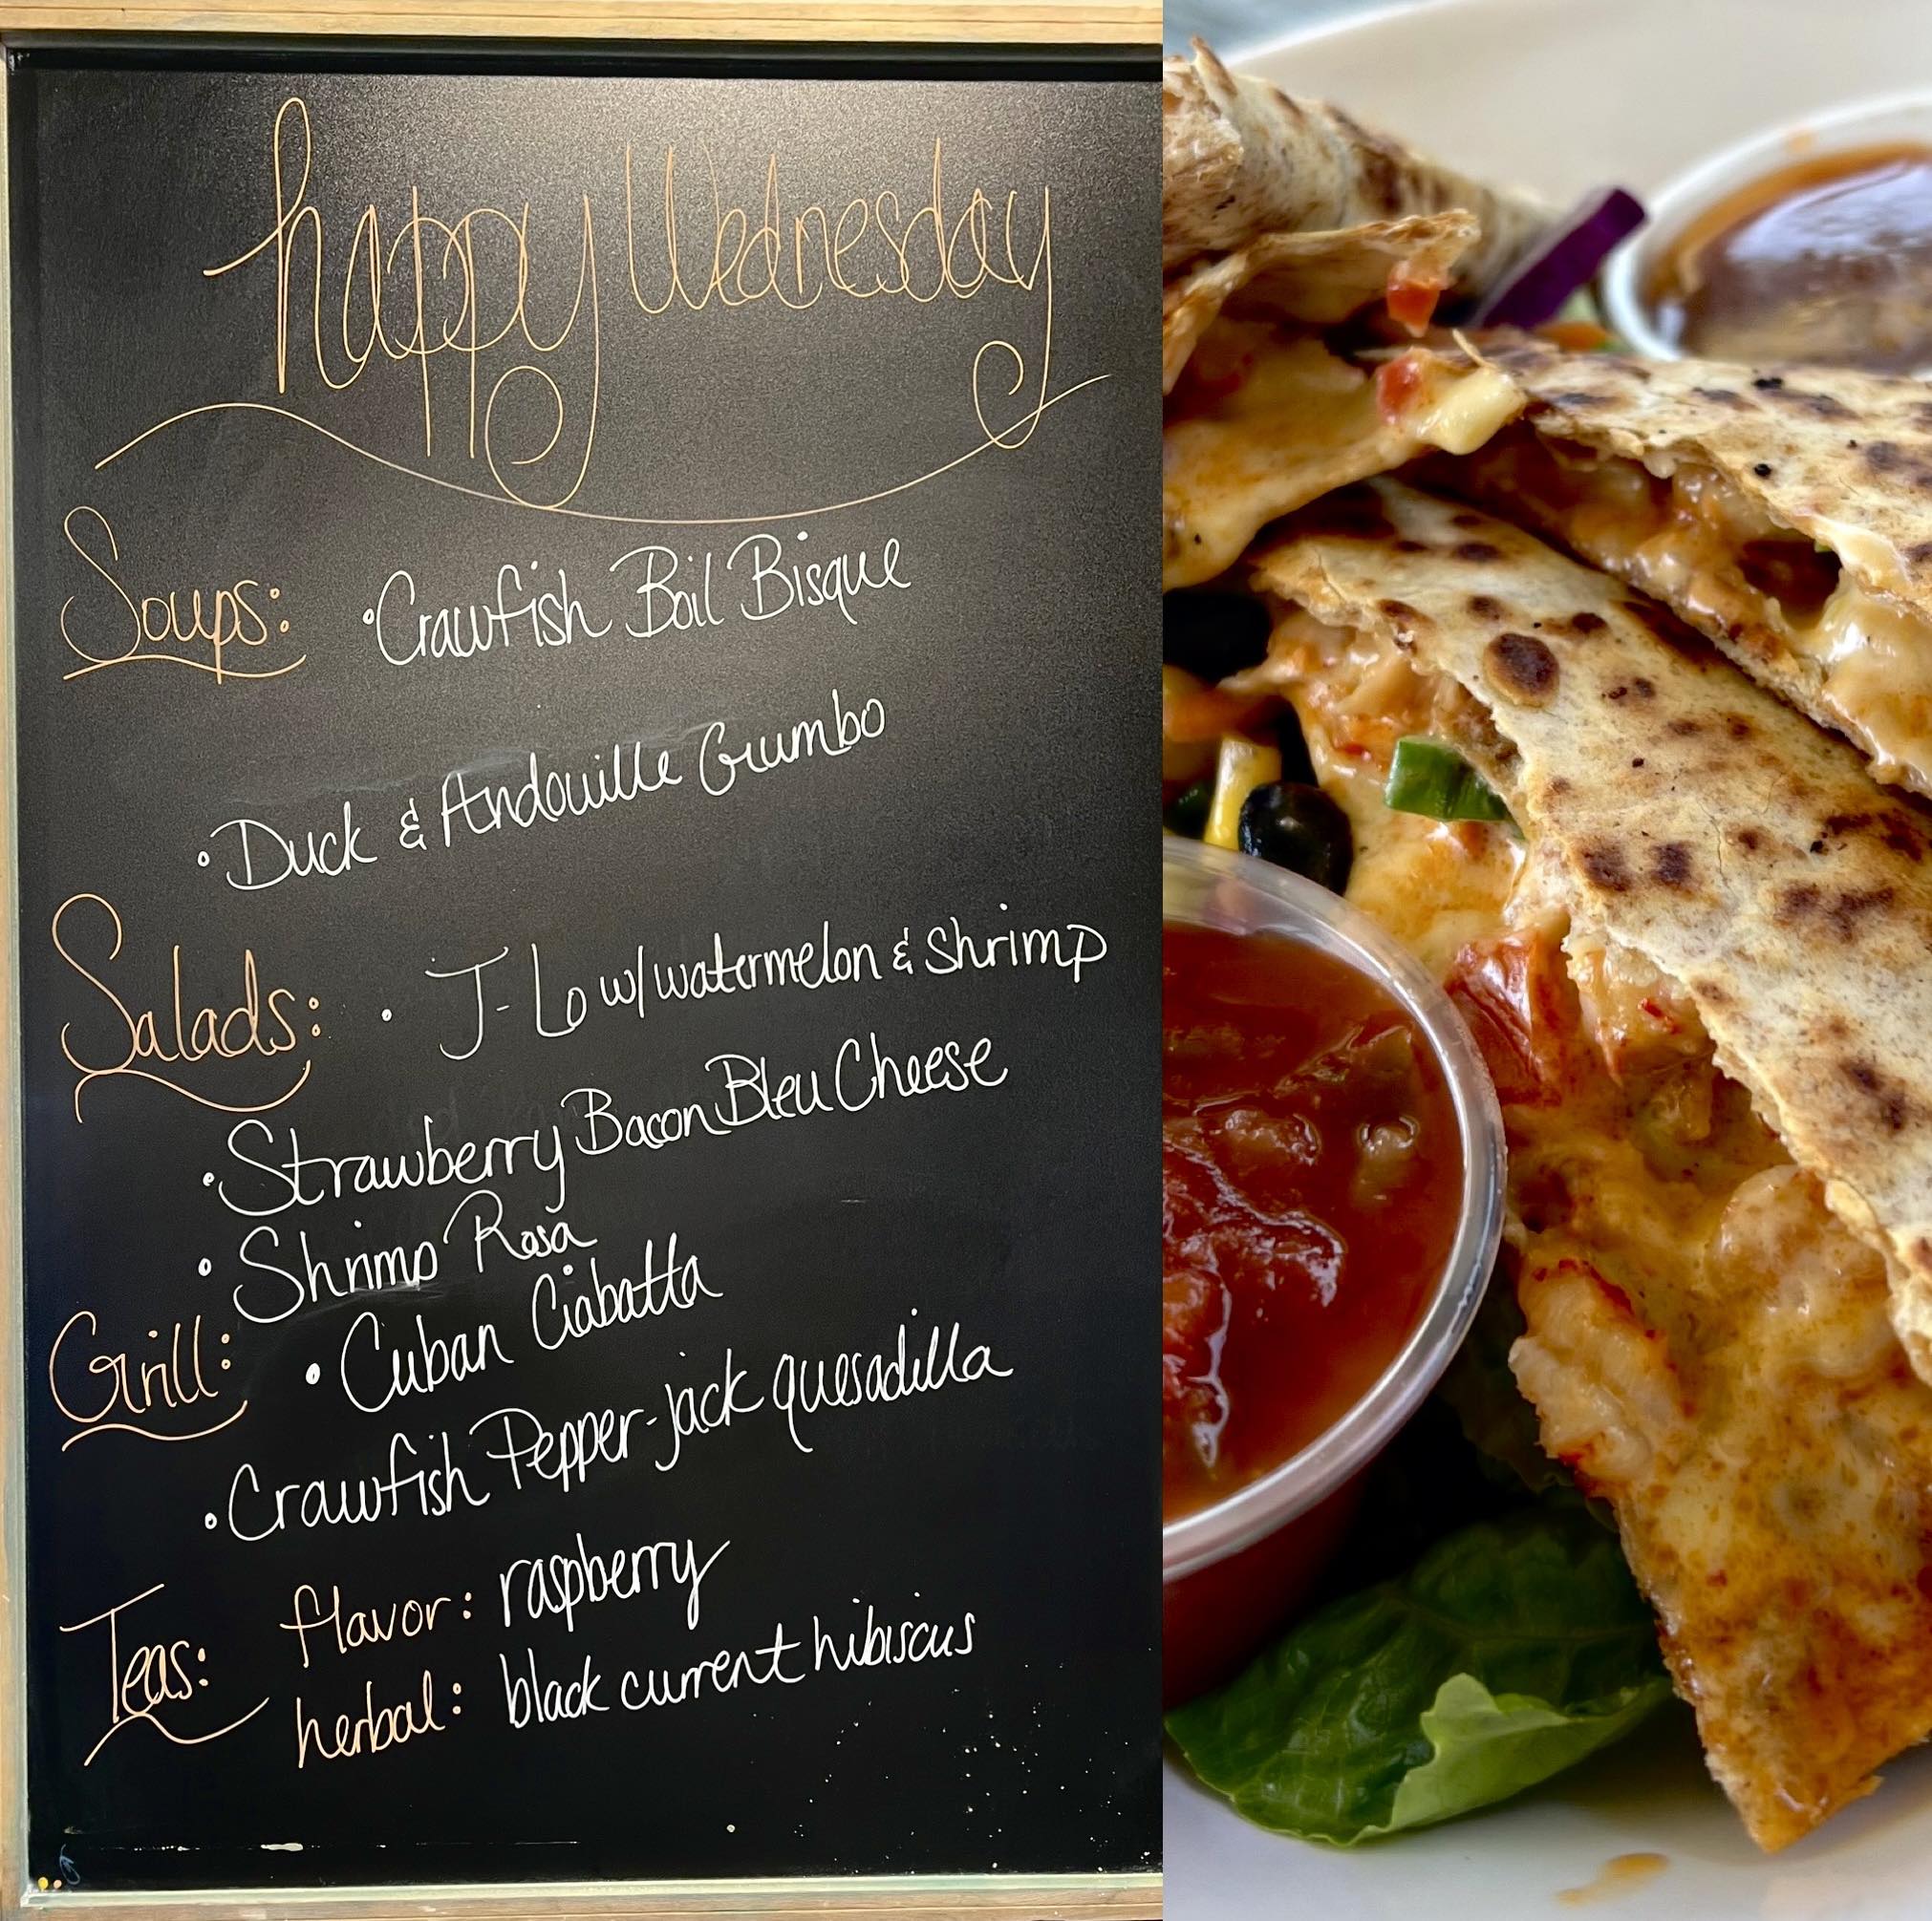 happy Wednesday
Soups: • Crawfish Boil Bisque
• Duck & Andouille Gumbo
Salads: • J-Lo w/ watermelon & shrimp
• Strawberry Bacon Bleu Cheese
• Shrimp Rosa
Grill: • Cuban Ciabatta
• Crawfish Pepper-jack quesadilla
Teas: flavor: raspberry
herbal: black current hibiscus